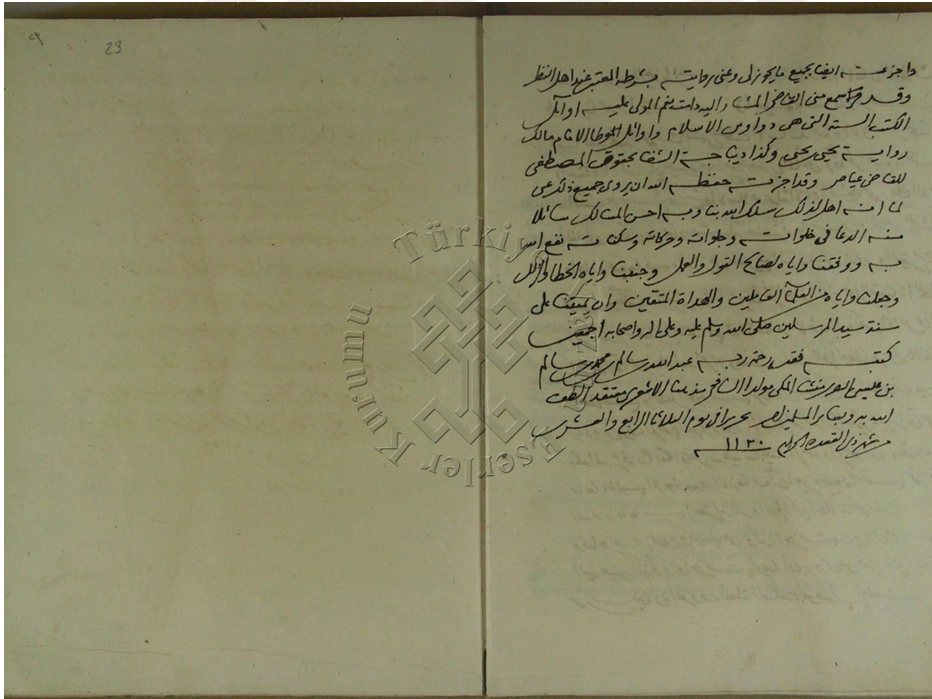 ٢٣
23
واجزت له ايضا بجميع ما يجوز لي وعني روايته بشرطه المعتبر عند اهل النظر
وقد سمع مني القاضي المشار اليه دامت نعم المولى عليه اوائل
الكتب الستة التي هي دواوين الاسلام واوائل الموطا للامام مالك
رواية يحيى بن يحيى وكذا ديباجة الشفا بحقوق المصطفى
للقاضي عياض وقد اجزت له حفظه الله ان يروي جميع ذلك عني
لما انه اهل لذلك سلك الله بنا وبه احسن المسالك سائلا
منه الدعا في خلواته وجلواته وحركاته وسكناته نفع الله
به ووفقنا واياه لصالح القول والعمل وجنبنا واياه الخطا والزلل
وجعلنا واياه من العلماء العاملين والهداة المتقين وان يميتنا على
سنة سيد المرسلين صلى الله وسلم عليه وعلى اله واصحابه اجمعين
كتبه فقير رحمة ربه عبد الله بن سالم بن محمد بن سالم
بن عيسى البصري منشا المكي مولدا الشافعي مذهبا الاشعري معتقدا لطف
الله به وبسائر المسلمين تحريرا في يوم الثلاثا الرابع والعشرين
من شهر ذي القعدة الحرام ١١٣٠
Türkiye
Eserler Kurumu